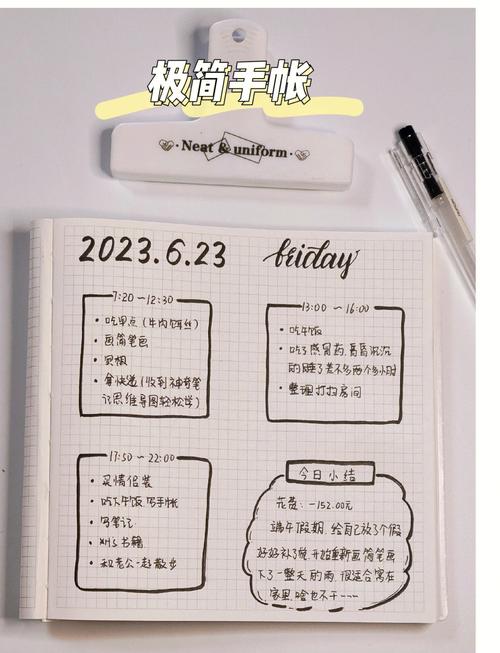 极简手帐
Neat & uniform
2023.6.23
friday
7:20~12:30
• 吃早点(牛肉饵丝)
• 画简笔画
• 拿快递(收到神奇笔
记思维导图轻松学)
13:00~16:00
• 吃午饭
• 吃了感冒药,昏昏沉沉
的睡了差不多两个多小时
• 整理打扫房间
17:50~22:00
• 买情侣装
• 吃下午饭,写手帐
• 写笔记
• xhs书籍
• 和老公一起散步
今日小结
花费:-152.00元
端午假期,给自己放了个假
好好补了觉,开始重新画简笔画
下了一整天的雨,很适合窝在
家里,啥也不干~~~